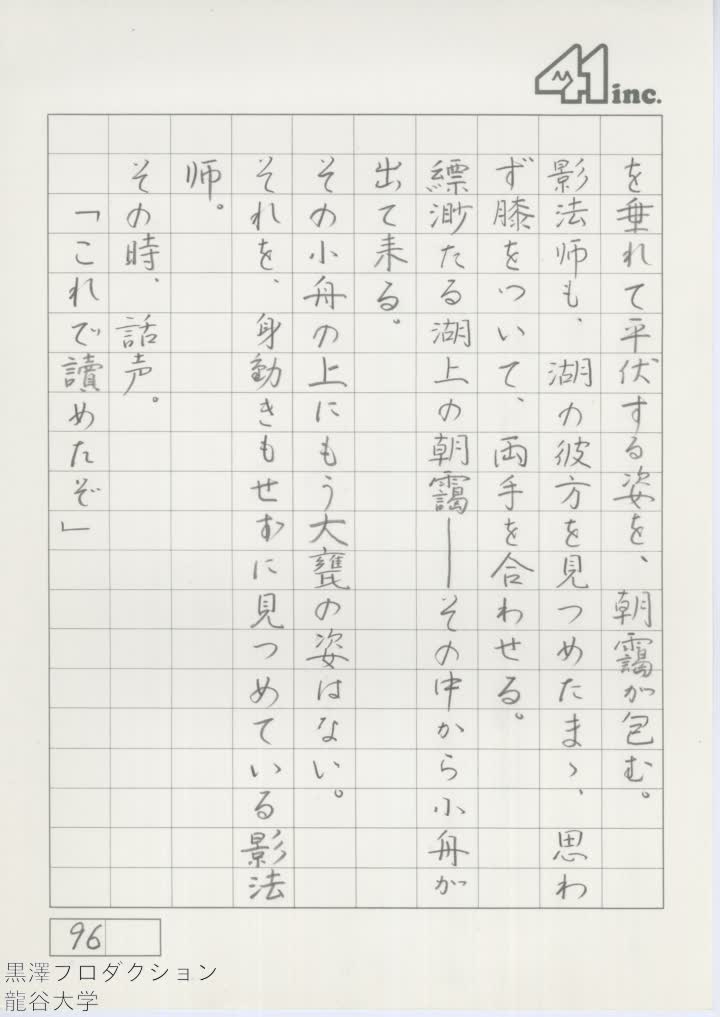 41 inc.
を垂れて平伏する姿を、朝靄が包む。
影法師も、湖の彼方を見つめたまゝ、思わ
ず膝をついて、両手を合わせる。
縹渺たる湖上の朝靄――その中から小舟が
出て来る。
その小舟の上にもう大甕の姿はない。
それを、身動きもせずに見つめている影法
師。
その時、話声。
「これで讀めたぞ」
96
黒澤プロダクション
龍谷大学